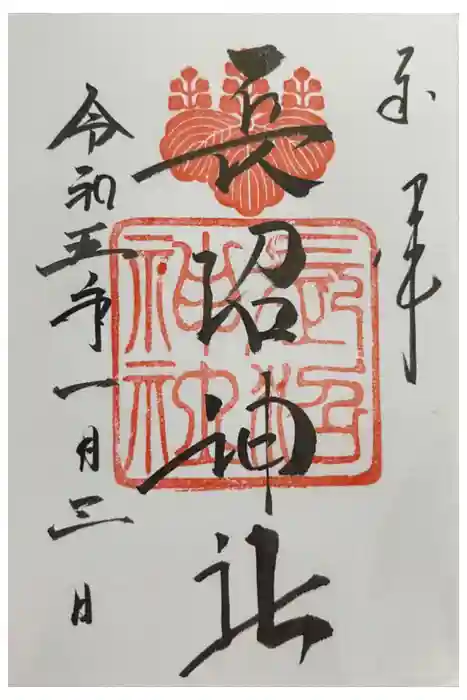 奉拝
長沼神社
長沼神社
令和五年一月三日